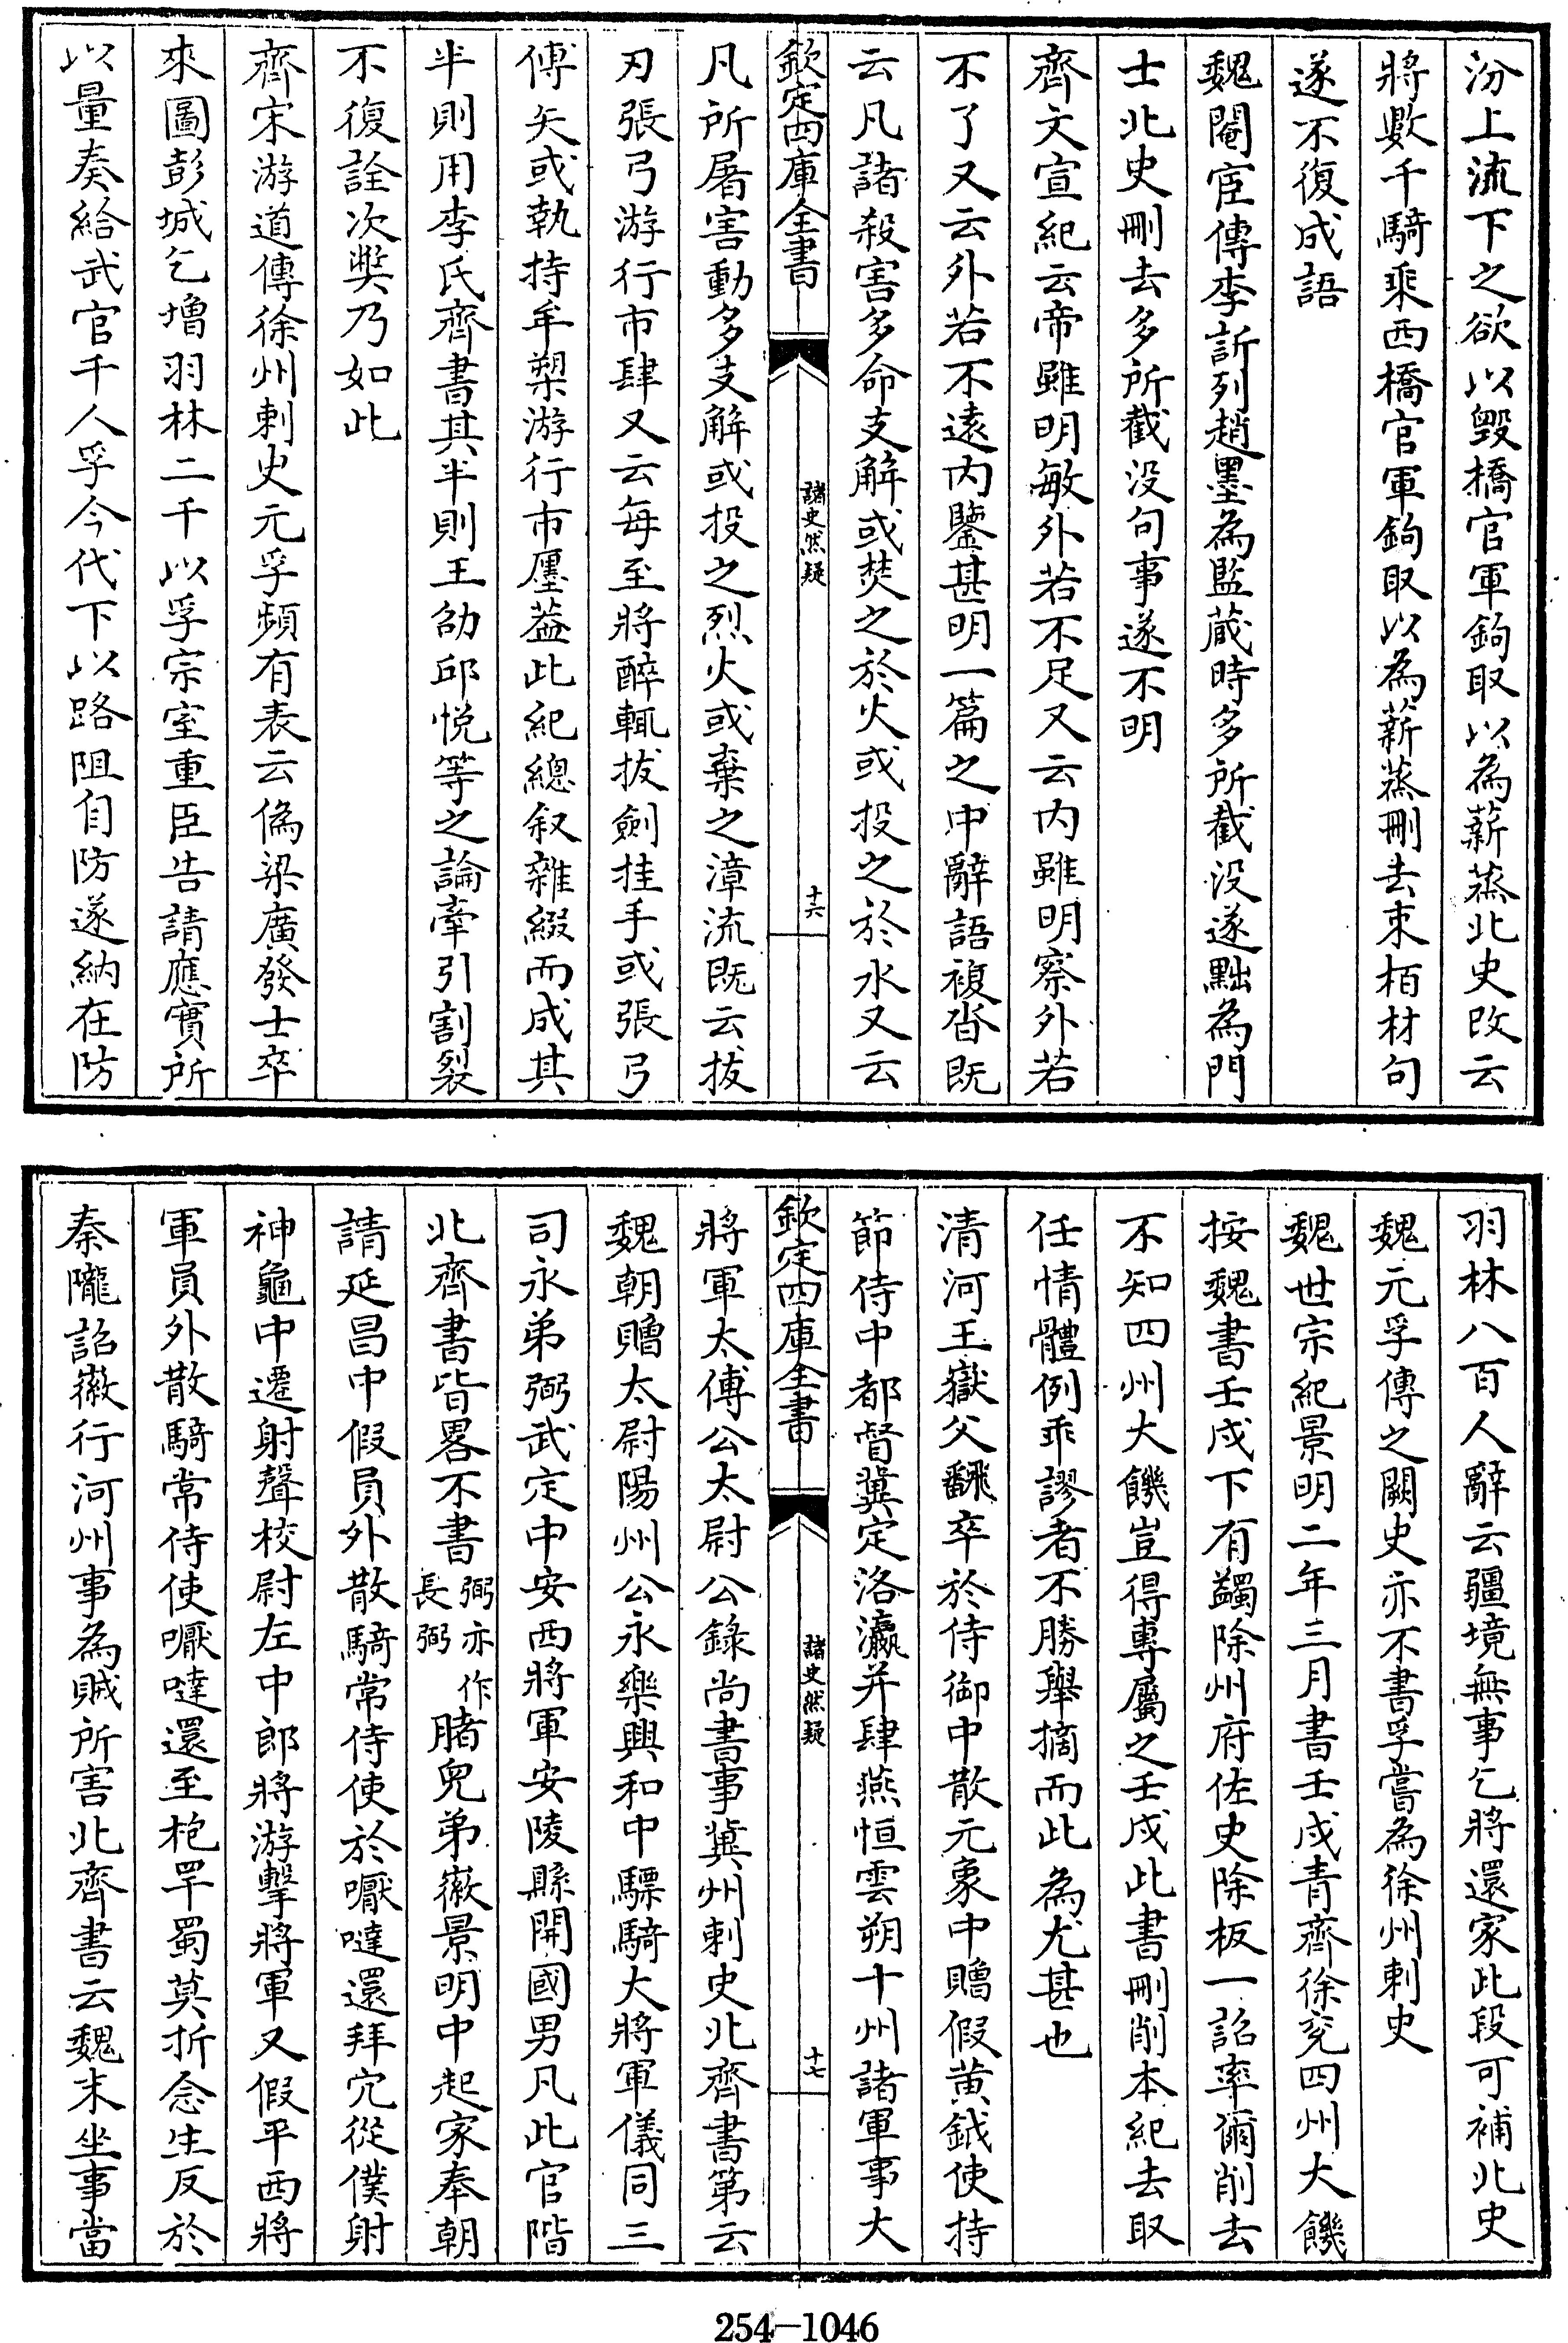 汾上流下之欲以毀橋官軍鉤取以為薪蒸北史改云
將數千騎乘西橋官軍鉤取以為薪蒸刪去束栢材句
遂不復成語
魏閹宦傳李訢列趙墨為監蔵時多所截没遂黜為門
士北史刪去多所截没句事遂不明
齊文宣紀云帝雖明敏外若不足又云内雖明察外若
不了又云外若不遠内鑒甚明一篇之中辭語複沓既
云凡諸殺害多命支解或焚之於火或投之於水又云
欽定四庫全書
諸史然疑
十六
凡所屠害動多支解或投之烈火或棄之漳流既云拔
刃張弓游行市肆又云每至將醉輒拔劍挂手或張弓
傅矢或執持牟槊游行市廛葢此紀總叙雜綴而成其
半則用李氏齊書其半則王劭邱悦等之論牽引割裂
不復詮次獘乃如此
齊宋游道傳徐州刺史元孚頻有表云偽梁廣發士卒
來圖彭城乞増羽林二千以孚宗室重臣告請應實所
以量奏給武官千人孚今代下以路阻自防遂納在防
羽林八百人辭云疆境無事乞將還家此段可補北史
魏元孚傳之闕史亦不書孚嘗為徐州刺史
魏世宗紀景明二年三月書壬戍青齊徐兖四州大饑
按魏書壬戍下有蠲除州府佐史除板一詔率爾削去
不知四州大饑豈得專屬之壬戍此書刪削本紀去取
任情體例乖謬者不勝舉摘而此為尤甚也
清河王嶽父飜卒於侍御中散元象中贈假黄鉞使持
節侍中都督冀定洛瀛并肆燕恒雲朔十州諸軍事大
欽定四庫全書
諸史然疑
十七
將軍太傅公太尉公錄尚書事冀州刺史北齊書第云
魏朝贈太尉陽州公永樂興和中驃騎大將軍儀同三
司永弟弼武定中安西將軍安陵縣開國男凡此官階
北齊書皆畧不書弼亦作長弼脩兒弟徽景明中起家奉朝
請延昌中假員外散騎常侍使於嚈噠還拜冗從僕射
神龜中遷射聲校尉左中郎將游擊將軍又假平西將
軍員外散騎常侍使嚈噠還至枹罕蜀莫折念生反於
秦隴詔徽行河州事為賊所害北齊書云魏末坐事當
254—1046